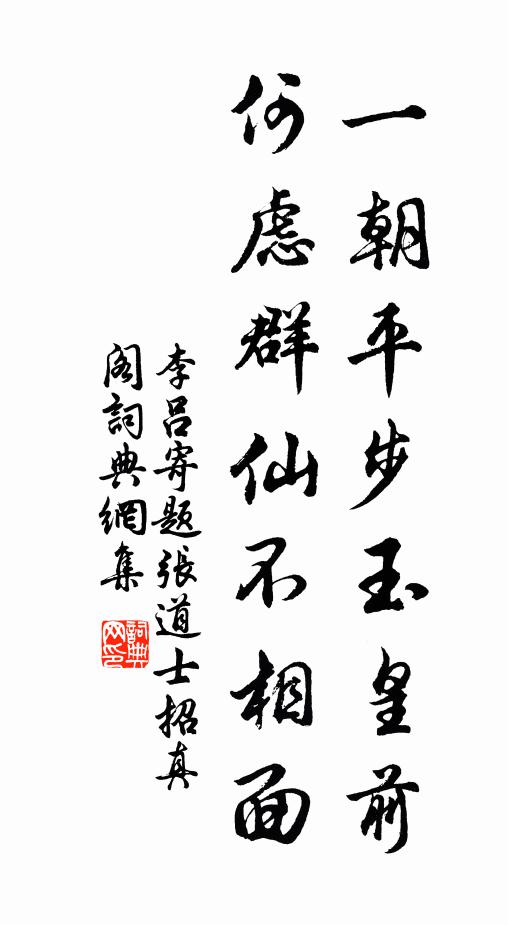 一朝平步玉皇前
何慮群仙不相面
李吕寄题張道士招真
阁詞典網集
詞典
网印